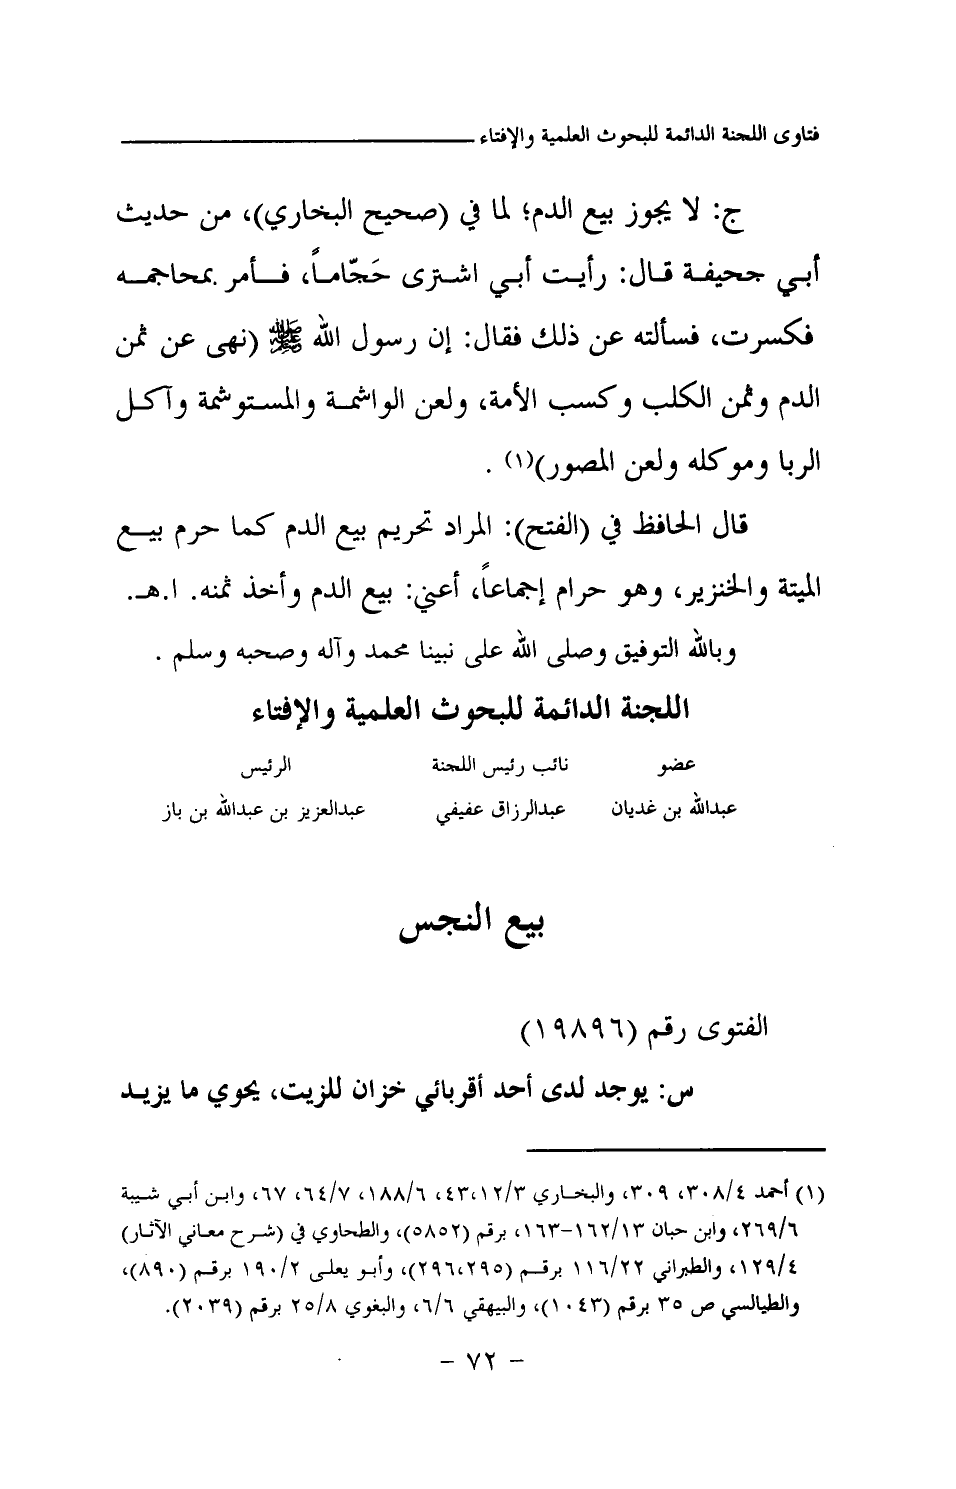 فتاوى اللجنة الدائمة للبحوث العلمية والإفتاء
ج: لا يجوز بيع الدم؛ لما في (صحيح البخاري)، من حديث
أبي جحيفة قال: رأيت أبي اشترى حَجّاماً، فأمر بمحاجمه
فكسرت، فسألته عن ذلك فقال: إن رسول الله ﷺ (نهى عن ثمن
الدم وثمن الكلب وكسب الأمة، ولعن الواشمة والمستوشمة وآكل
الربا وموكله ولعن المصور)(١) .
قال الحافظ في (الفتح): المراد تحريم بيع الدم كما حرم بيع
الميتة والخنزير، وهو حرام إجماعاً، أعني: بيع الدم وأخذ ثمنه. ا.هـ.
وبالله التوفيق وصلى الله على نبينا محمد وآله وصحبه وسلم .
اللجنة الدائمة للبحوث العلمية والإفتاء
عضو نائب رئيس اللجنة الرئيس
عبدالله بن غديان عبدالرزاق عفيفي عبدالعزيز بن عبدالله بن باز
بيع النجس
الفتوى رقم (١٩٨٩٦)
س: يوجد لدى أحد أقربائي خزان للزيت، يحوي ما يزيد
(١) أحمد ٣٠٨/٤، ٣٠٩، والبخاري ١٢/٣، ٤٣، ١٨٨/٦، ٦٤/٧، ٦٧، وابن أبي شيبة
٢٦٩/٦، وابن حبان ١٦٢/١٣-١٦٣، برقم (٥٨٥٢)، والطحاوي في (شرح معاني الآثار)
١٢٩/٤، والطبراني ١١٦/٢٢ برقم (٢٩٥، ٢٩٦)، وأبو يعلى ١٩٠/٢ برقم (٨٩٠)،
والطيالسي ص ٣٥ برقم (١٠٤٣)، والبيهقي ٦/٦، والبغوي ٢٥/٨ برقم (٢٠٣٩).
- ٧٢ -